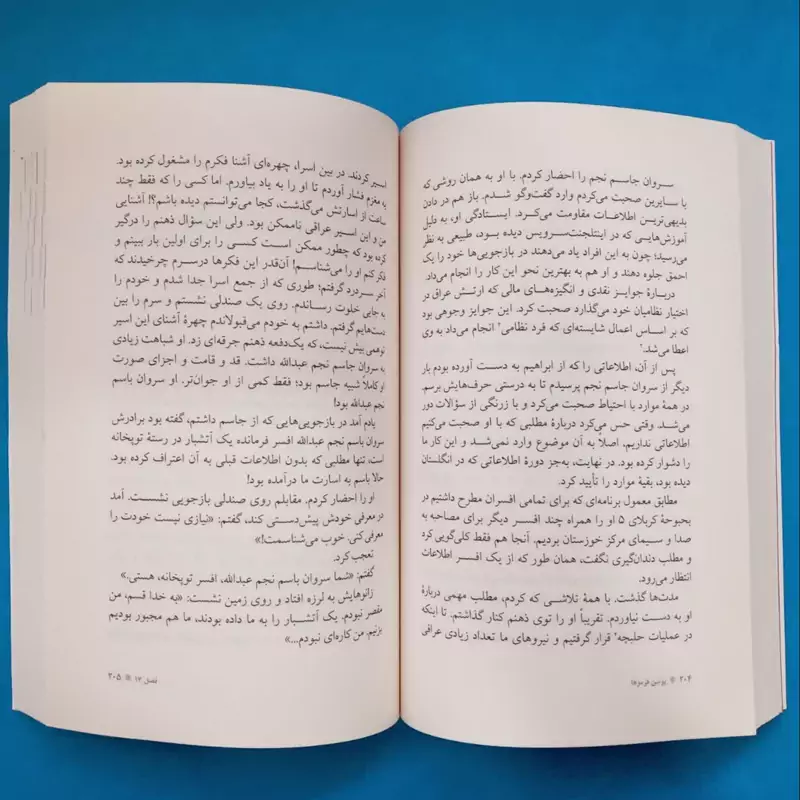 سروان جاسم نجم را احضار کردم. با او به همان روشی که
با سایرین صحبت می‌کردم وارد گفت‌وگو شدم. باز هم در دادن
بدیهی‌ترین اطلاعات مقاومت می‌کرد. ایستادگی او، به دلیل
آموزش‌هایی که در اینتلجنت‌سرویس دیده بود، طبیعی به نظر
می‌رسید؛ چون به این افراد یاد می‌دهند در بازجویی‌ها خود را یک
احمق جلوه دهند و او هم به بهترین نحو این کار را انجام می‌داد.
دربارهٔ جوایز نقدی و انگیزه‌های مالی که ارتش عراق در
اختیار نظامیان خود می‌گذارد صحبت کرد. این جوایز وجوهی بود
که بر اساس اعمال شایسته‌ای که فرد نظامی' انجام می‌داد به وی
اعطا می‌شد.'
پس از آن، اطلاعاتی را که از ابراهیم به دست آورده بودم بار
دیگر از سروان جاسم نجم پرسیدم تا به درستی حرف‌هایش برسم.
در همهٔ موارد با احتیاط صحبت می‌کرد و با زرنگی از سؤالات دور
می‌شد. وقتی حس می‌کرد دربارهٔ مطلبی که با او صحبت می‌کنیم
اطلاعاتی نداریم، اصلاً به آن موضوع وارد نمی‌شد و این کار ما
را دشوار کرده بود. در نهایت، به‌جز دورهٔ اطلاعاتی که در انگلستان
دیده بود، بقیهٔ موارد را تأیید کرد.
مطابق معمول برنامه‌ای که برای تمامی افسران مطرح داشتیم در
بحبوحهٔ کربلای ۵ او را همراه چند افسر دیگر برای مصاحبه به
صدا و سیمای مرکز خوزستان بردیم. آنجا هم فقط کلی‌گویی کرد
و مطلب دندان‌گیری نگفت، همان طور که از یک افسر اطلاعات
انتظار می‌رود.
مدت‌ها گذشت. با همهٔ تلاشی که کردم، مطلب مهمی دربارهٔ
او به دست نیاوردم. تقریباً او را توی ذهنم کنار گذاشتم. تا اینکه
در عملیات حلبچه' قرار گرفتیم و نیروهای ما تعداد زیادی عراقی
۲۰۴ پوتین قرمزها
اسیر کردند. در بین اسرا، چهره‌ای آشنا فکرم را مشغول کرده بود.
به مغزم فشار آوردم تا او را به یاد بیاورم. اما کسی را که فقط چند
ساعت از اسارتش می‌گذشت، کجا می‌توانستم دیده باشم؟! آشنایی
من و این اسیر عراقی ناممکن بود. ولی این سؤال ذهنم را درگیر
کرده بود که چطور ممکن است کسی را برای اولین بار ببینم و
فکر کنم او را می‌شناسم! آن‌قدر این فکرها درسرم چرخیدند که
آخر سردرد گرفتم؛ طوری که از جمع اسرا جدا شدم و خودم را
به جایی خلوت رساندم. روی یک صندلی نشستم و سرم را بین
دست‌هایم گرفتم. داشتم به خودم می‌قبولاندم چهرهٔ آشنای این اسیر
توهمی بیش نیست، که یک‌دفعه ذهنم جرقه‌ای زد. او شباهت زیادی
به سروان جاسم نجم عبدالله داشت. قد و قامت و اجزای صورت
او کاملاً شبیه جاسم بود؛ فقط کمی از او جوان‌تر. او سروان باسم
نجم عبدالله بود!
یادم آمد در بازجویی‌هایی که از جاسم داشتم، گفته بود برادرش
سروان باسم نجم عبدالله افسر فرمانده یک آتشبار در رستهٔ توپخانه
است، تنها مطلبی که بدون اطلاعات قبلی به آن اعتراف کرده بود.
حالا باسم به اسارت ما درآمده بود!
او را احضار کردم. مقابلم روی صندلی بازجویی نشست. آمد
در معرفی خودش پیش‌دستی کند، گفتم: «نیازی نیست خودت را
معرفی کنی. خوب می‌شناسمت!»
تعجب کرد.
گفتم: «شما سروان باسم نجم عبدالله، افسر توپخانه، هستی.»
زانوهایش به لرزه افتاد و روی زمین نشست: «به خدا قسم، من
مقصر نبودم. یک آتشبار را به ما داده بودند، ما هم مجبور بودیم
بزنیم. من کاره‌ای نبودم...»
فصل ۱۳ ۲۰۵